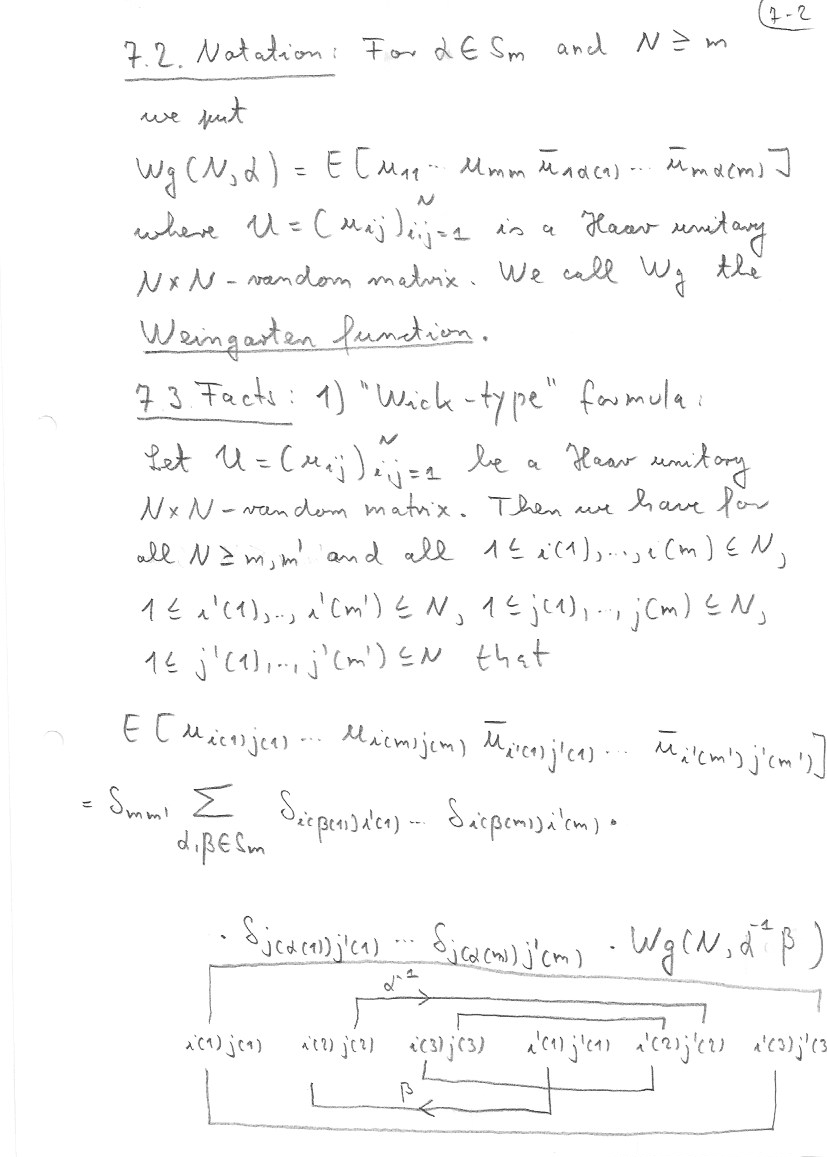 7-2
7.2. Notation: For α ∈ Sm and N ≥ m
we put
Wg(N,α) = E[u11 ... umm ū1α(1) ... ūmα(m)]
where U = (uij)^N_{i,j=1} is a Haar unitary
N×N-random matrix. We call Wg the
Weingarten function.
7.3 Facts: 1) "Wick-type" formula:
Let U = (uij)^N_{i,j=1} be a Haar unitary
N×N-random matrix. Then we have for
all N ≥ m,m' and all 1 ≤ i(1),...,i(m) ≤ N,
1 ≤ i'(1),..,i'(m') ≤ N, 1 ≤ j(1),..,j(m) ≤ N,
1 ≤ j'(1),..,j'(m') ≤ N that
E[u_{i(1)j(1)} ... u_{i(m)j(m)} ū_{i'(1)j'(1)} ... ū_{i'(m')j'(m')}]
= δ_{mm'} Σ_{α,β∈Sm} δ_{i(β(1))i'(1)} ... δ_{i(β(m))i'(m)} ·
· δ_{j(α(1))j'(1)} ... δ_{j(α(m))j'(m)} · Wg(N, α^{-1}β)
α^{-1}
i(1)j(1) i(2)j(2) i(3)j(3) i'(1)j'(1) i'(2)j'(2) i'(3)j'(3
β